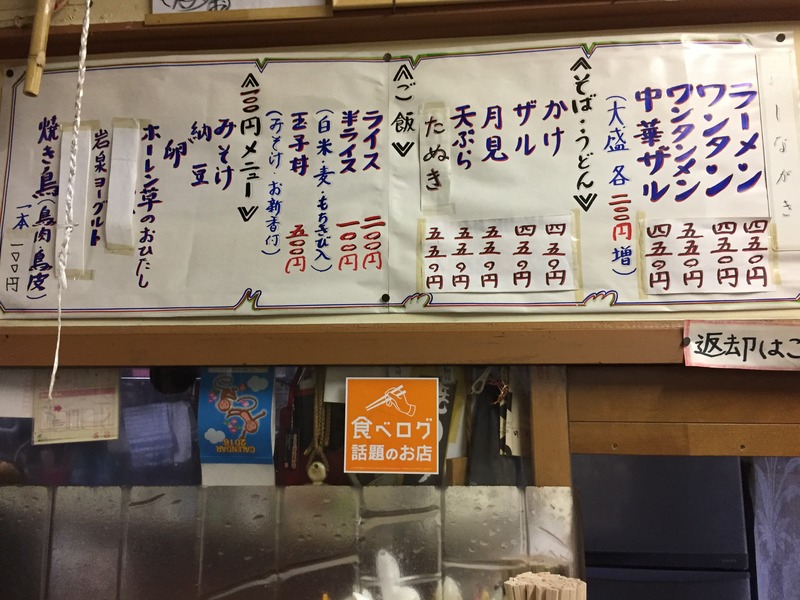 おしながき
ラーメン 四五〇円
ワンタン 四五〇円
ワンタンメン 五五〇円
中華ザル 四五〇円
(大盛 各 二〇〇円 増)
≪そば・うどん≫
かけ 四五〇円
ザル 四五〇円
月見 五五〇円
天ぷら 五五〇円
たぬき 五五〇円
≪ご飯≫
ライス 二〇〇円
半ライス 一〇〇円
(白米・麦・もちきび入)
玉子丼 五〇〇円
(みそ汁・お新香付)
≪一〇〇円メニュー≫
みそ汁
納豆
卵
ホーレン草のおひたし
岩泉ヨーグルト
焼き鳥(鳥肉・鳥皮)
一本 一〇〇円
返却はこ
食べログ
話題のお店
CALENDAR
2016